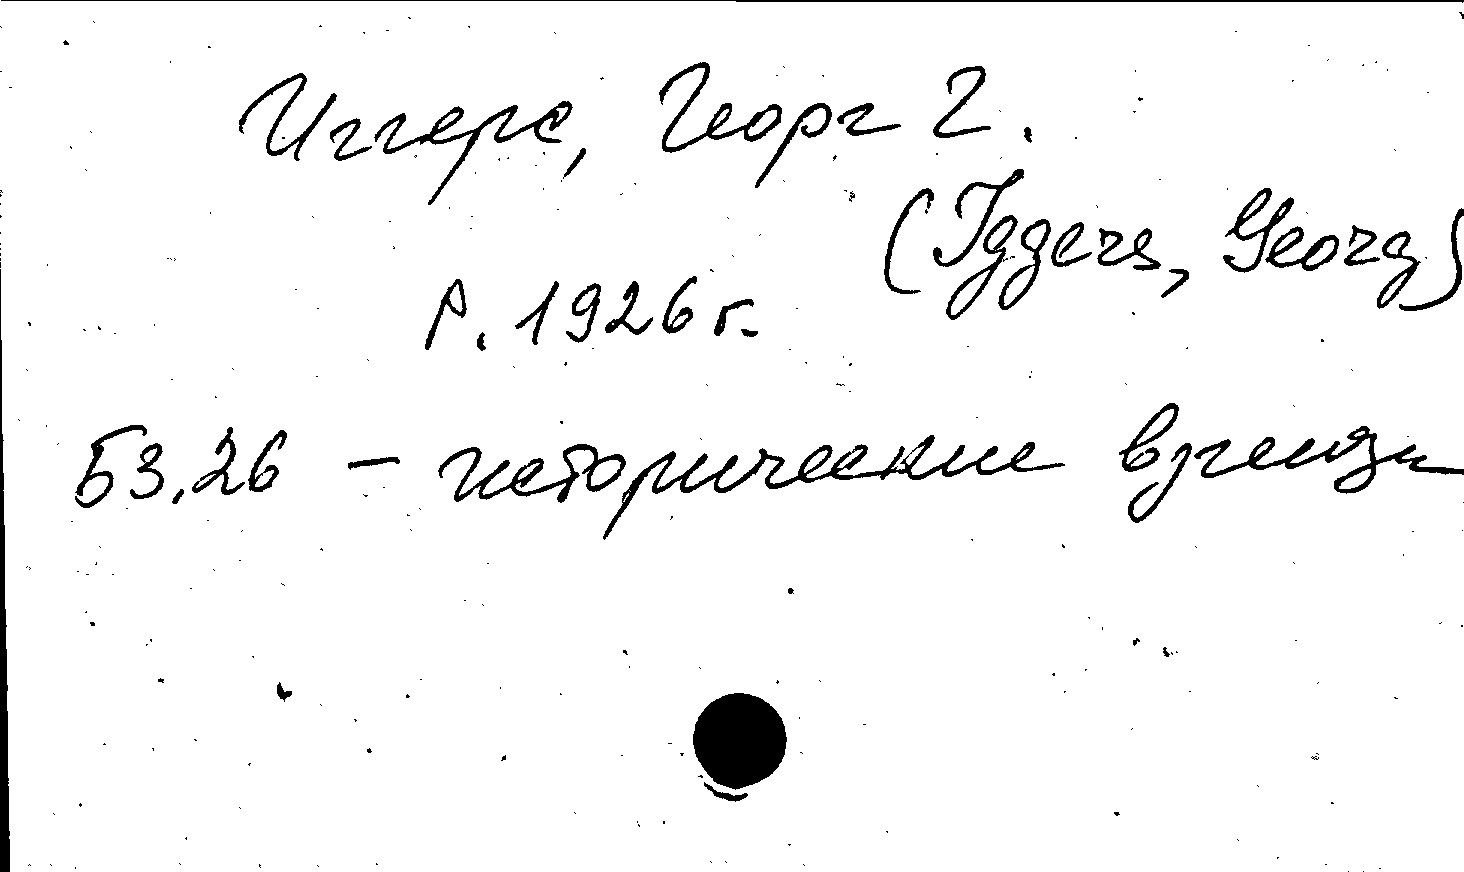 Иггерс, Георг Г.
(Iggers, Georg)
Р. 1926 г.
Б3.26 — исторические взгляды